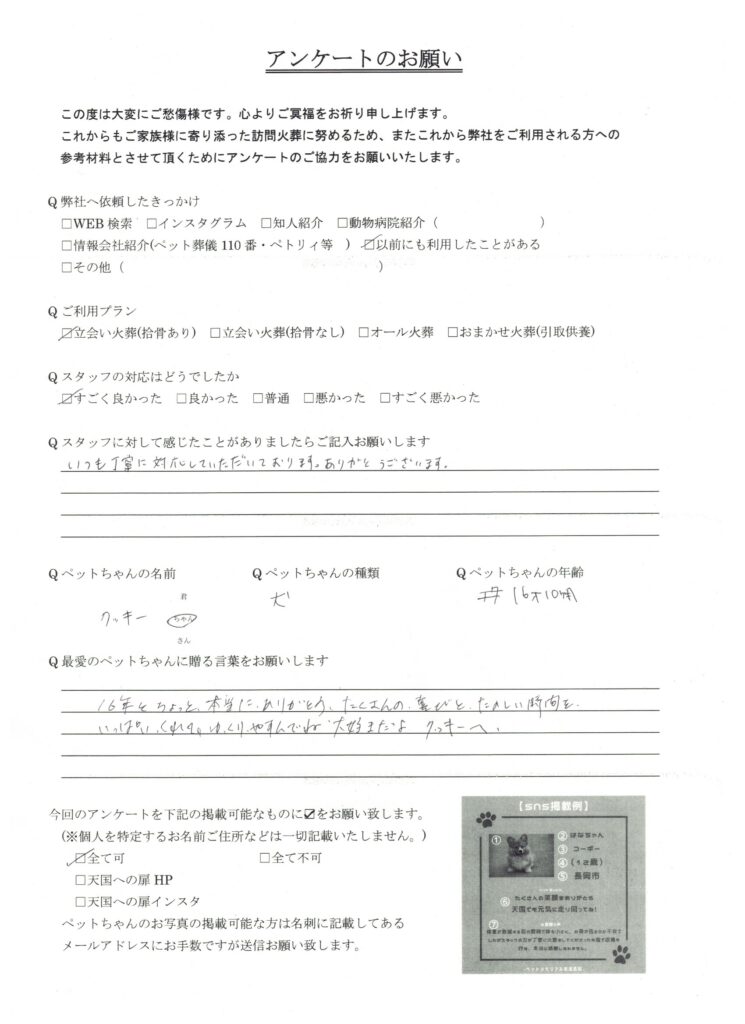 アンケートのお願い
この度は大変にご愁傷様です。心よりご冥福をお祈り申し上げます。
これからもご家族様に寄り添った訪問火葬に努めるため、またこれから弊社をご利用される方への
参考材料とさせて頂くためにアンケートのご協力をお願いいたします。
Q 弊社へ依頼したきっかけ
□WEB 検索 □インスタグラム □知人紹介 □動物病院紹介（ ）
□情報会社紹介(ペット葬儀 110 番・ペトリィ等 ) ☑以前にも利用したことがある
□その他（ ）
Q ご利用プラン
☑立会い火葬(拾骨あり) □立会い火葬(拾骨なし) □オール火葬 □おまかせ火葬(引取供養)
Q スタッフの対応はどうでしたか
☑すごく良かった □良かった □普通 □悪かった □すごく悪かった
Q スタッフに対して感じたことがありましたらご記入お願いします
いつも丁寧に対応していただいております。ありがとうございます。
Q ペットちゃんの名前 Q ペットちゃんの種類 Q ペットちゃんの年齢
君
クッキー ちゃん 犬 16才10ヶ月
さん
Q 最愛のペットちゃんに贈る言葉をお願いします
16年とちょっと、本当に、ありがとう、たくさんの、喜びと、たのしい時間を
いっぱいくれて。ゆっくりやすんでね 大好きだよ クッキーへ、
今回のアンケートを下記の掲載可能なものに☑をお願い致します。
(※個人を特定するお名前ご住所などは一切記載いたしません。)
☑全て可 □全て不可
□天国への扉 HP
□天国への扉インスタ
ペットちゃんのお写真の掲載可能な方は名刺に記載してある
メールアドレスにお手数ですが送信お願い致します。
【sns掲載例】
① ② はなちゃん
③ コーギー
④ (13歳)
⑤ 長岡市
⑥ たくさんの笑顔をありがとう
天国でも元気に走り回ってね！
⑦